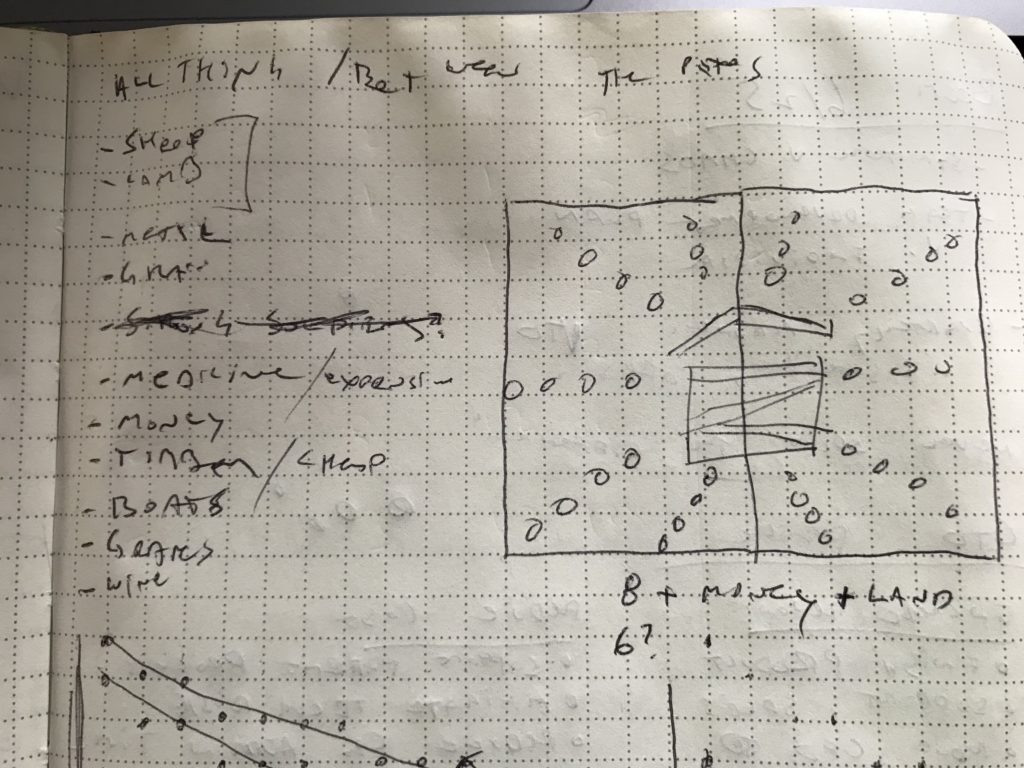 ALL THING / BETWEEN THE POSTS
- SHEEP
- LAMB
- METAL
- GRAIN
- MEDICINE / EXPANSION
- MONEY
- TIMBER / CHEAP
- BOATS
- GRAPES
- WINE
8 + MONEY + LAND
6?